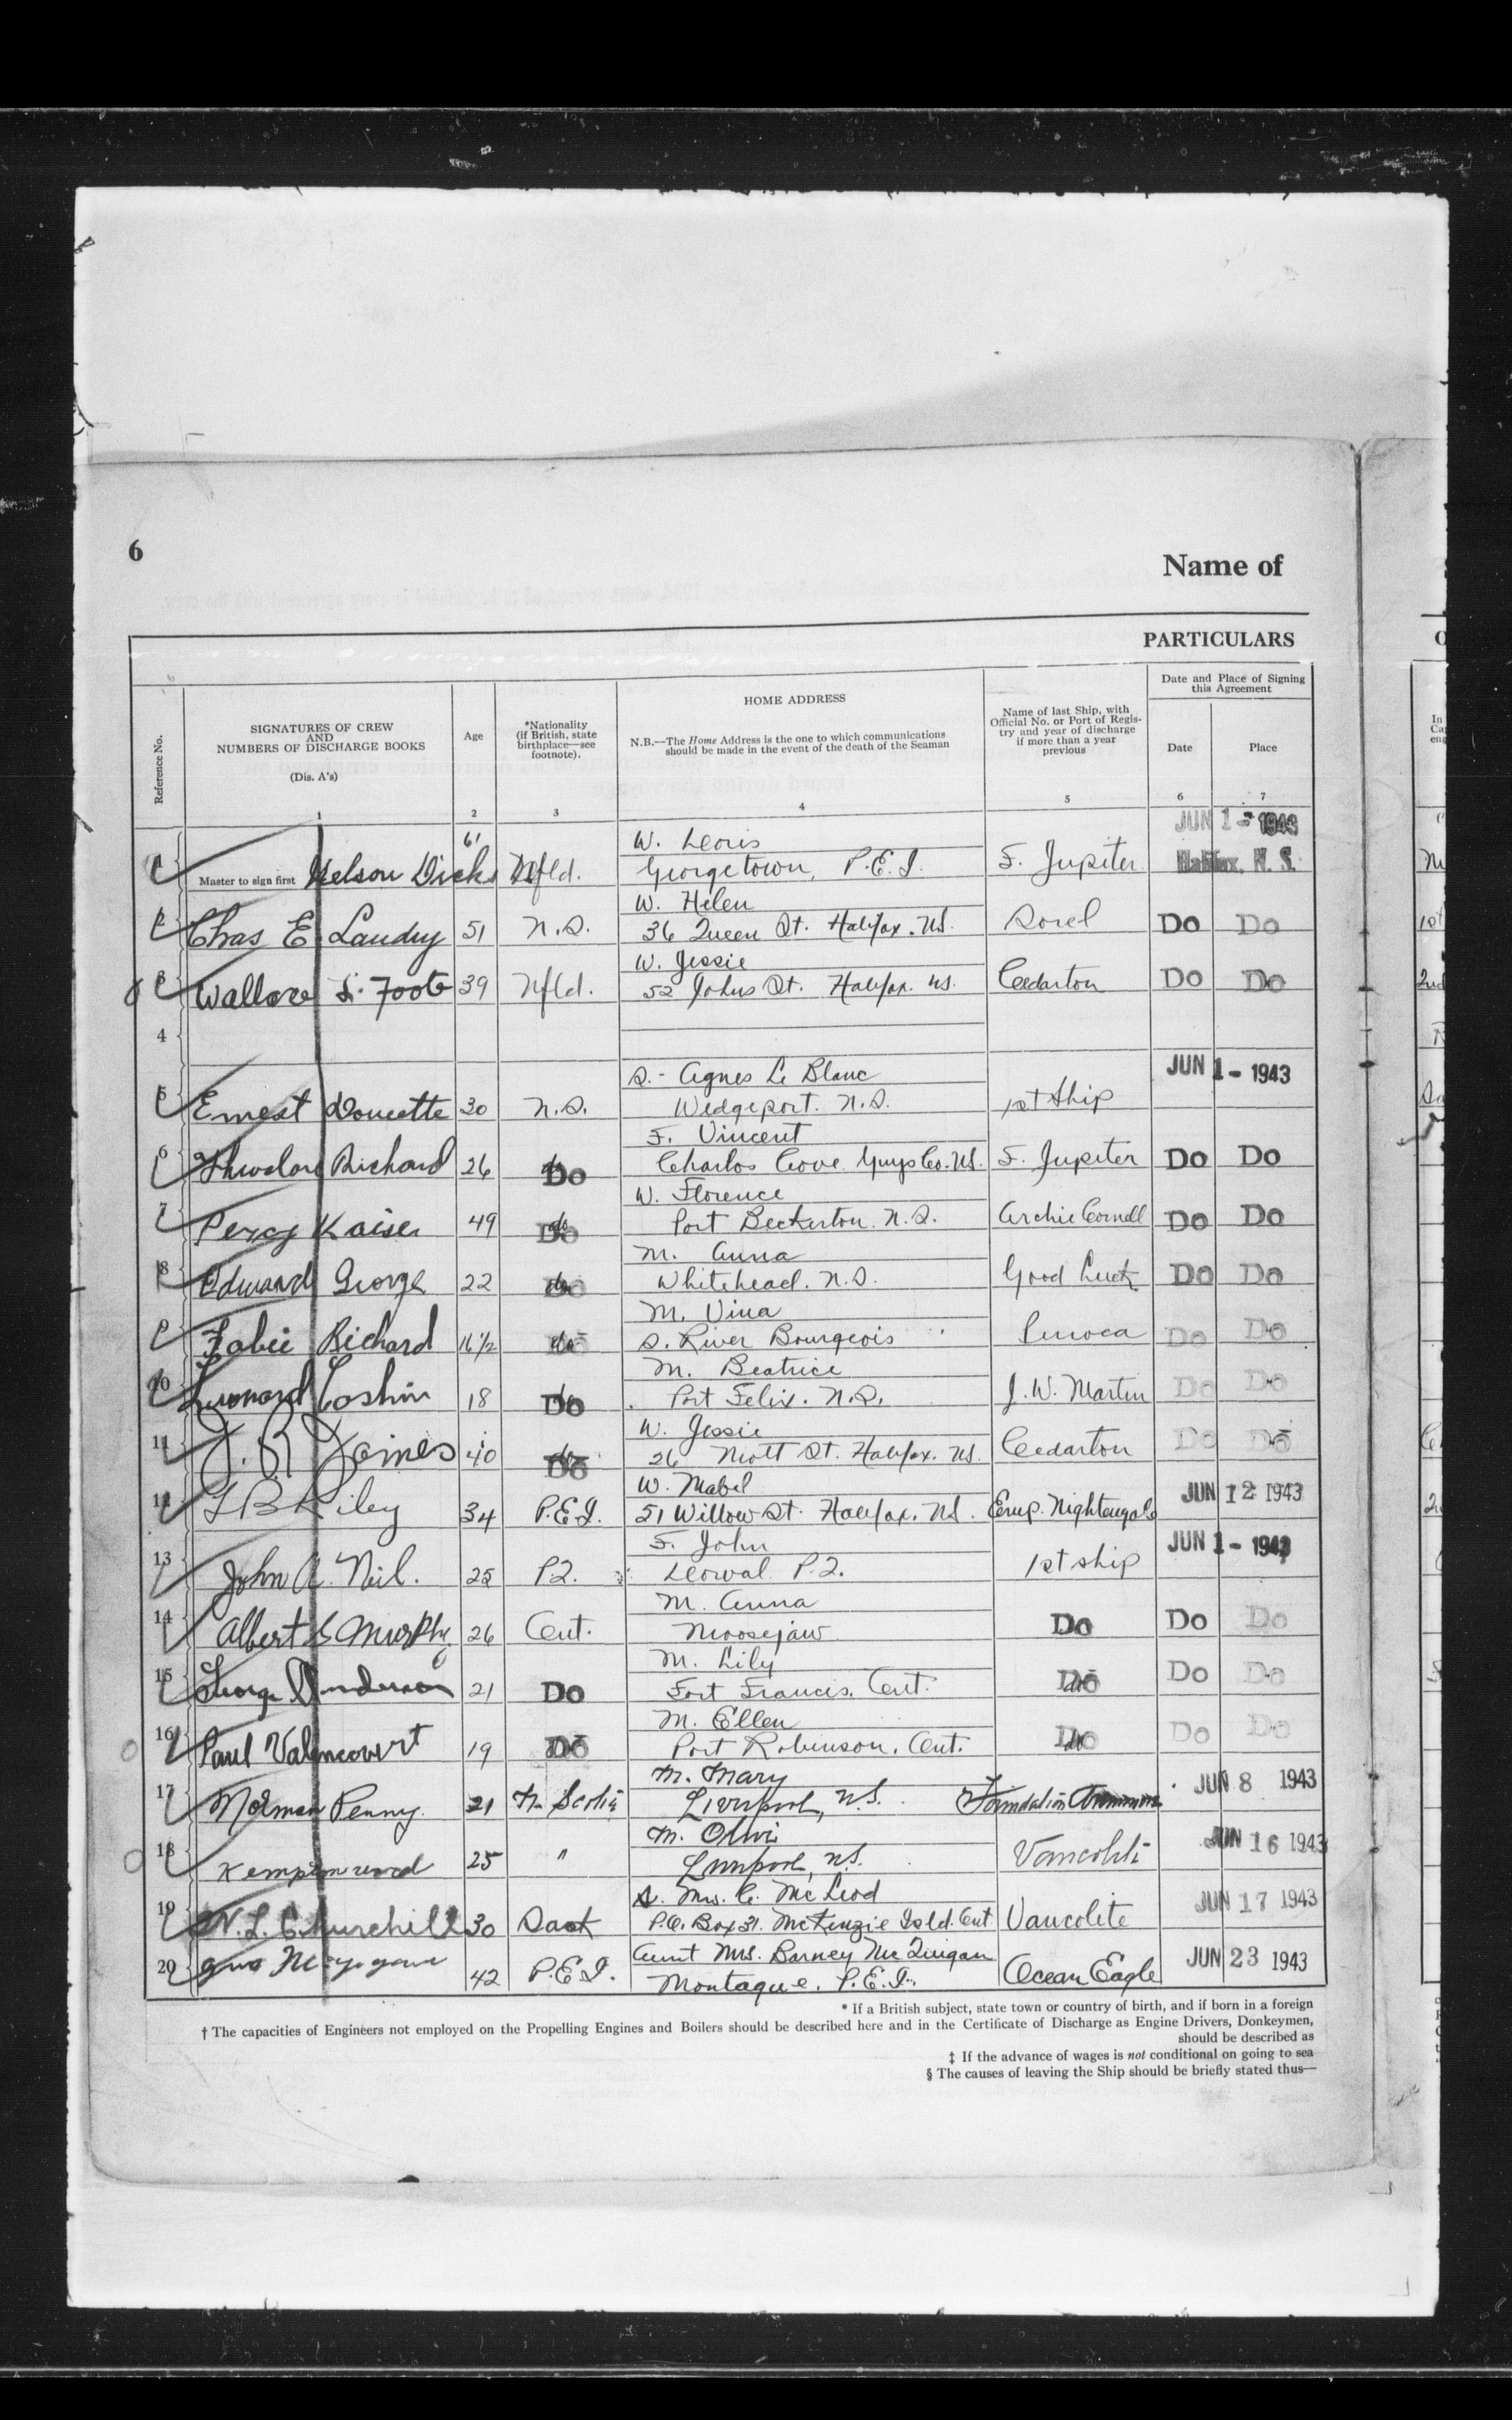 6
Name of
PARTICULARS
Reference No.
SIGNATURES OF CREW
AND
NUMBERS OF DISCHARGE BOOKS
(Dis. A's)
1
Age
2
*Nationality
(if British, state
birthplace—see
footnote).
3
HOME ADDRESS
N.B.—The Home Address is the one to which communications
should be made in the event of the death of the Seaman
4
Name of last Ship, with
Official No. or Port of Regis-
try and year of discharge
if more than a year
previous
5
Date and Place of Signing
this Agreement
Date
6
Place
7
W. Doris JUN 1 - 1943
1 Master to sign first Nelson Dicks 61 Nfld. Georgetown, P.E.I. F. Jupiter Halifax, N. S.
W. Helen
2 Chas E. Landry 51 N.S. 36 Queen St. Halifax. N.S. Sorel Do Do
W. Jessie
3 Wallace F. Foote 39 Nfld. 52 Johns St. Halifax. N.S. Cedarton Do Do
4
S.- Agnes Le Blanc JUN 1 - 1943
5 Ernest Doucette 30 N.S. Wedgeport. N.S. 1st Ship
F. Vincent
6 Richard 26 Do Charlos Cove Guys Co. N.S. F. Jupiter Do Do
W. Florence
7 Percy Kaiser 49 Do Port Beckerton. N.S. Archie Do Do
M. Anna
8 Edward George 22 Do Whitehead. N.S. Good Luck Do Do
M. Vina
9 Fabie Richard 16½ Do S. River Bourgeois Do Do
M. Beatrice
10 Leonard Coshin 18 Do Port Felix. N.S. J. W. Martin Do Do
W. Jessie
11 J. R. 40 Do 26 Nott St. Halifax. N.S. Cedarton Do Do
W. Mabel
12 L B Riley 34 P.E.I. 51 Willow St. Halifax. N.S. Emp. Nightengale JUN 12 1943
F. John
13 John A. Neil. 25 P2. Dorval. P.2. 1st ship JUN 1 - 1943
M. Anna
14 Albert S Murphy 26 Ont. Moosejaw Do Do Do
M. Lily
15 George Anderson 21 Do Fort Francis. Ont. Do Do Do
M. Ellen
16 Paul Valencourt 19 Do Port Robinson. Ont. Do Do Do
M. Mary
17 Norman Penny. 21 N. Scotia Liverpool, N.S. Foundation JUN 8 1943
M.
18 Kempton 25 " Liverpool, N.S. Vancolite JUN 16 1943
S. Mrs. C. McLeod
19 N. L. Churchill 30 Sask P.O. Box 31. McKenzie Isld. Ont Vancolite JUN 17 1943
Aunt Mrs. Barney
20 42 P.E.I. Montague. P.E.I. Ocean Eagle JUN 23 1943
* If a British subject, state town or country of birth, and if born in a foreign
† The capacities of Engineers not employed on the Propelling Engines and Boilers should be described here and in the Certificate of Discharge as Engine Drivers, Donkeymen,
should be described as
‡ If the advance of wages is not conditional on going to sea
§ The causes of leaving the Ship should be briefly stated thus—